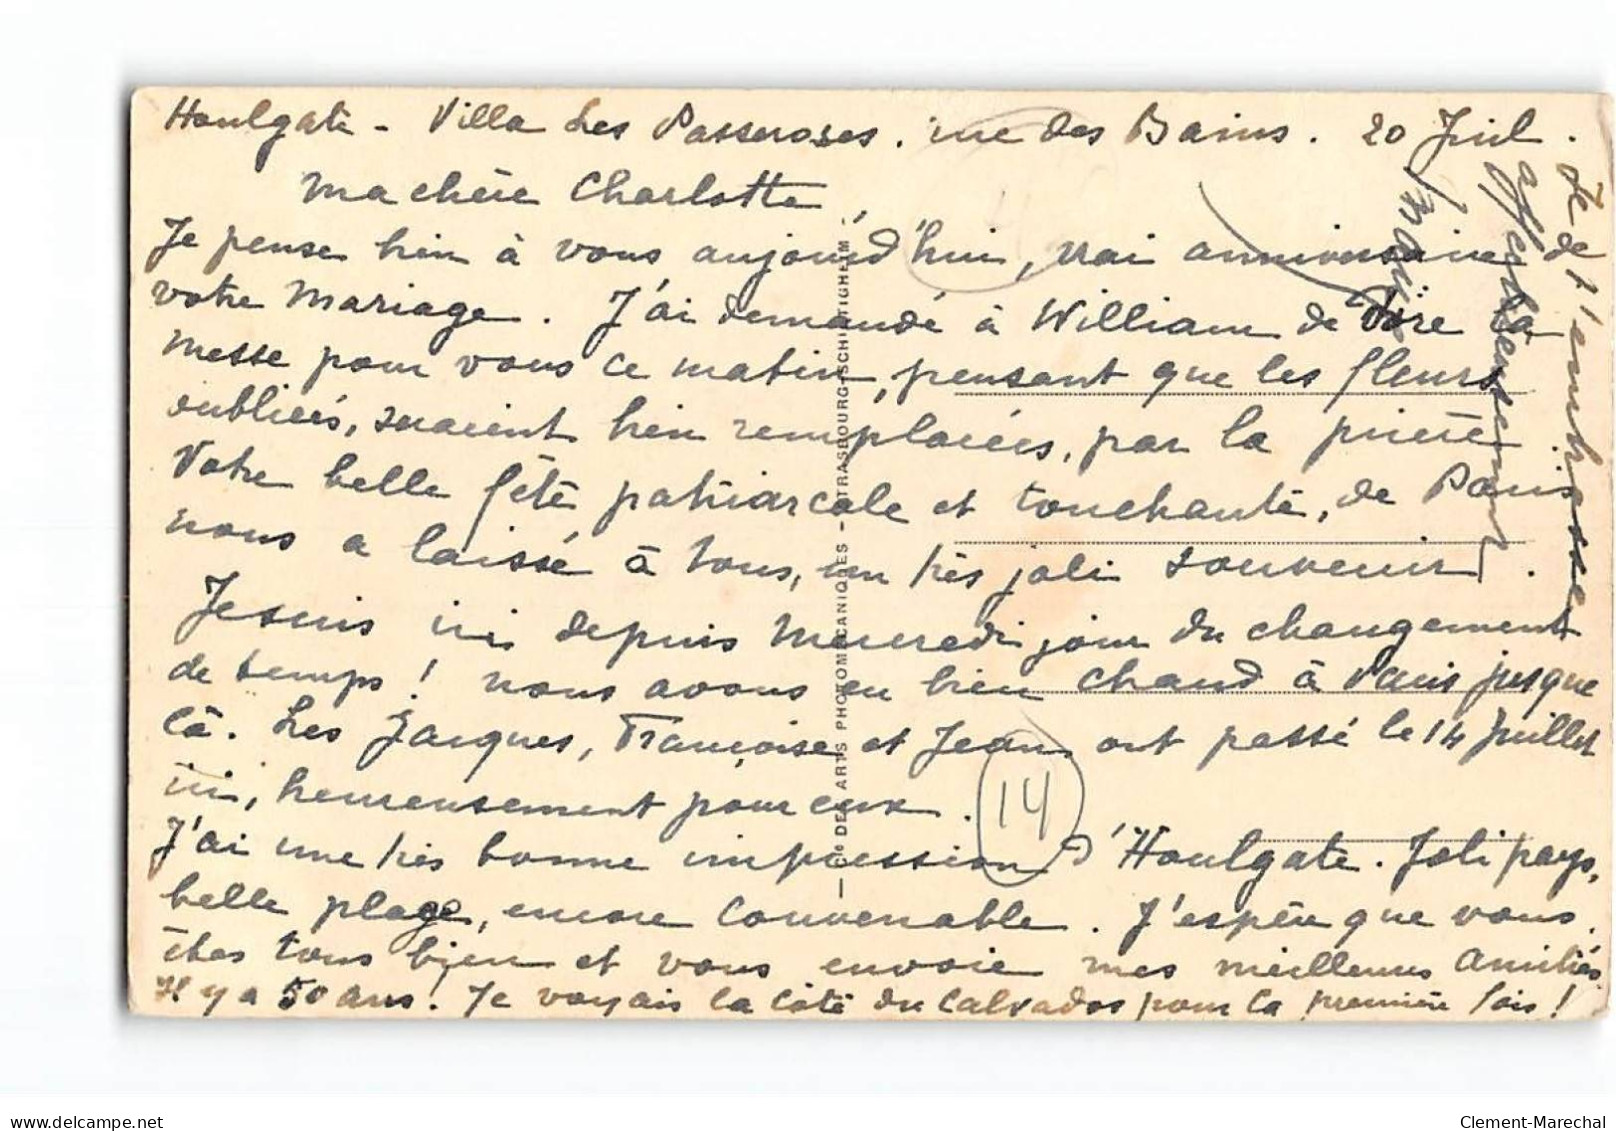 Houlgate - Villa Les Passeroses. rue des Bains. 20 Juil.
Ma chère Charlotte,
Je pense bien à vous aujourd'hui, vrai anniversaire de
votre Mariage. J'ai demandé à William de dire la
messe pour vous ce matin, pensant que les fleurs
oubliées, seraient bien remplacées, par la prière.
Votre belle fête patriarcale et touchante, de Paris
nous a laissé à tous, un très joli souvenir.
Je suis ici depuis Mercredi jour du changement
de temps! nous avons eu bien chaud à Paris jusque
là. Les Jacques, Françoise et Jean ont passé le 14 Juillet
ici, heureusement pour eux.
J'ai une très bonne impression d'Houlgate. Joli pays,
belle plage, encore convenable. J'espère que vous
êtes tous bien et vous envoie mes meilleures amitiés
Il y a 50 ans! Je voyais la Côte du Calvados pour la première fois!
Je t'embrasse
affectueusement
14
- Cie DES ARTS PHOTOMÉCANIQUES - STRASBOURG-SCHILTIGHEIM -
delcampe.net
Clement-Marechal